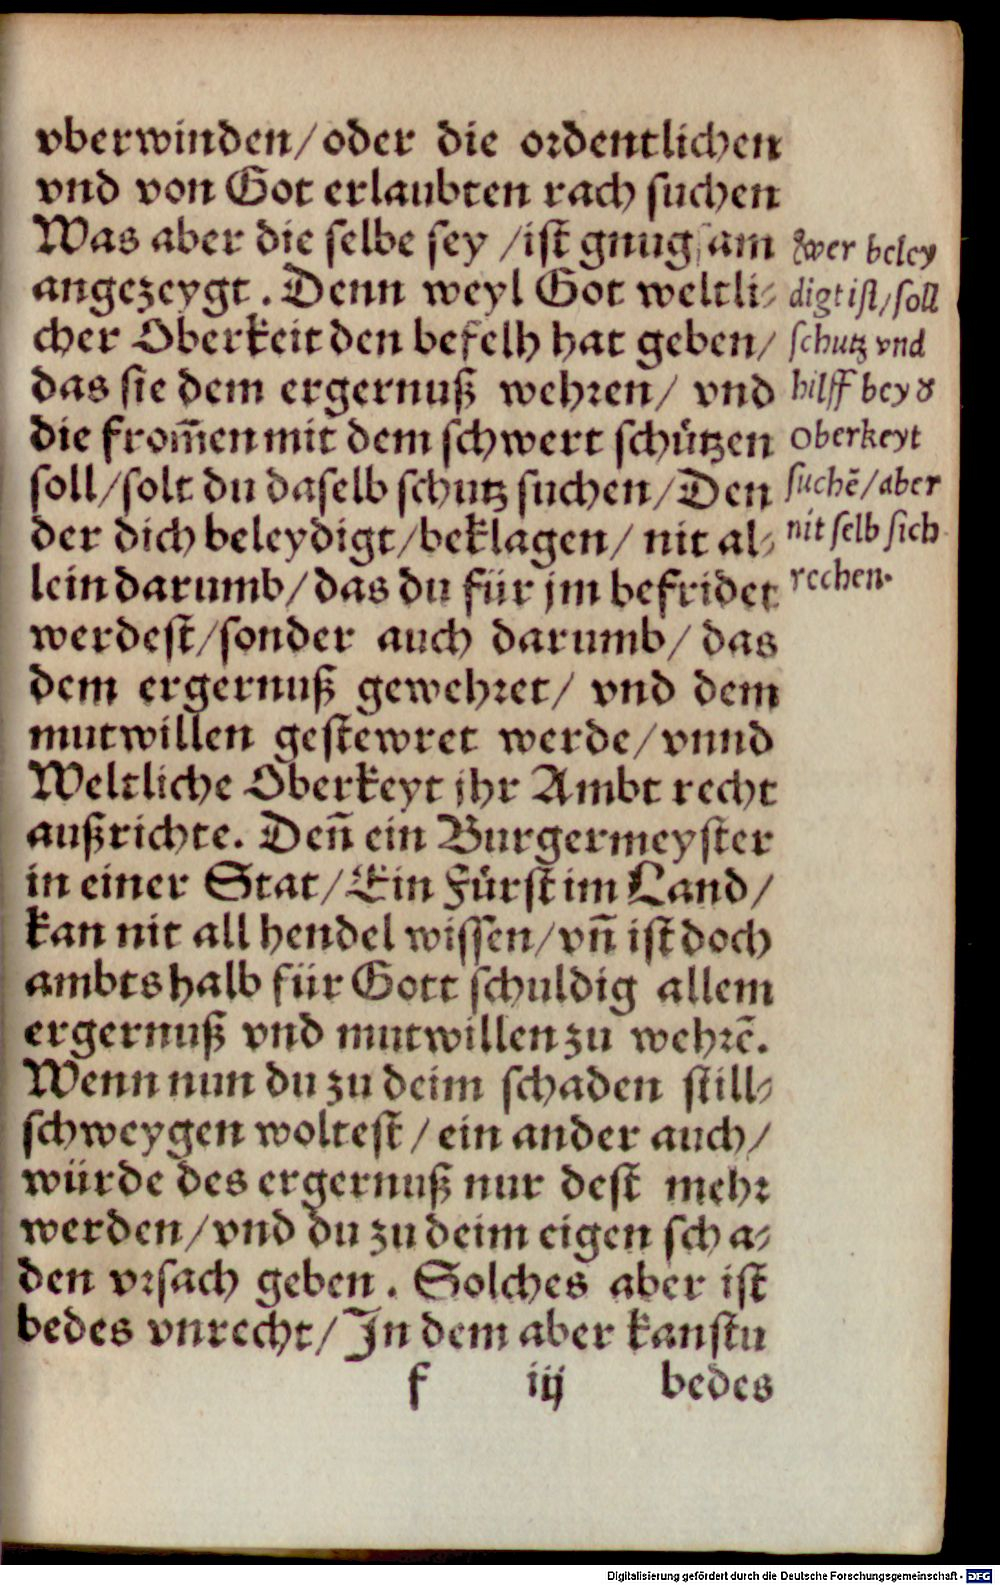 vberwinden/ oder die ordentlichen
vnd von Got erlaubten rach suchen
Was aber die selbe sey /ist gnugsam
angezeygt. Denn weyl Got weltli-
cher Oberkeit den befelh hat geben/
das sie dem ergernuß wehren/ vnd
die from̃en mit dem schwert schützen
soll/solt du daselb schutz suchen/Den
der dich beleydigt/beklagen/ nit al-
lein darumb/das du für jm befridet
werdest/sonder auch darumb/ das
dem ergernuß gewehret/ vnd dem
mutwillen gestewret werde/vnnd
Weltliche Oberkeyt jhr Ambt recht
außrichte. Deñ ein Burgermeyster
in einer Stat/Ein Fürst im Land/
kan nit all hendel wissen/vñ ist doch
ambtshalb für Gott schuldig allem
ergernuß vnd mutwillen zu wehrẽ.
Wenn nun du zu deim schaden still-
schweygen woltest/ein ander auch/
würde des ergernuß nur dest mehr
werden/vnd du zu deim eigen scha-
den vrsach geben. Solches aber ist
bedes vnrecht/In dem aber kanstu
f iij bedes
wer beley
digt ist/soll
schutz vnd
hilff bey d᷑
Oberkeyt
suchẽ/aber
nit selb sich
rechen.
Digitalisierung gefördert durch die Deutsche Forschungsgemeinschaft - DFG